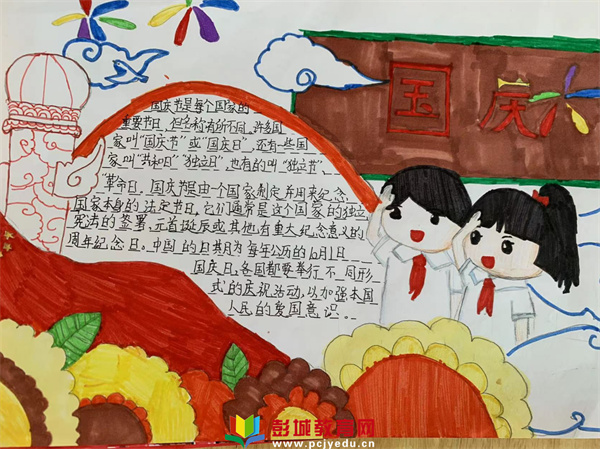 国庆
国庆节是每个国家的
重要节日,但名称有所不同,许多国
家叫“国庆节”或“国庆日”,还有一些国
家叫“共和日”“独立日”,也有的叫“独立节”、
革命日,国庆节是由一个国家制定并用来纪念
国家本身的法定节日,它们通常是这个国家的独立
宪法的签署,元首诞辰或其他有重大纪念意义的
周年纪念日。中国的日期为每年公历的10月1日
国庆日,各国都要举行不同形
式的庆祝活动,以加强本国
人民的爱国意识。
彭城教育网
www.pcjyedu.cn